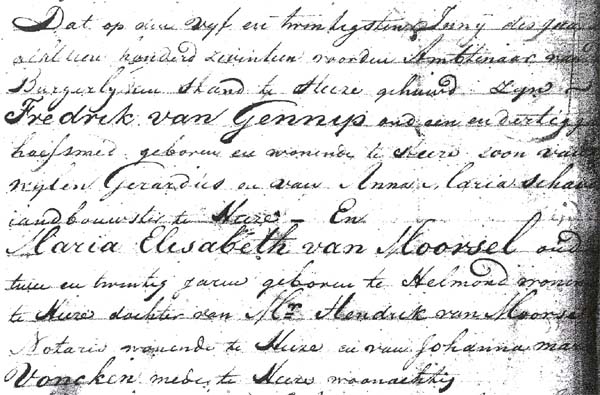 Dat op den vyf en twintigsten Juny des jaar
achtien honderd zeventien voor den Ambtenaar van d
Burgerlyken Stand te Heeze gehuwd zyn
Fredrik van Gennip oud een en dertig j
hoefsmed geboren en wonende te Heeze zoon van
wylen Gerardus en van Anna Maria
landbouwster te Heeze - En
Maria Elisabeth van Moorsel oud
twee en twintig jaren geboren te Helmond wonen
te Heeze dochter van Mr. Hendrik van Moorsel
Notaris wonende te Heeze en van Johanna mar
Voncken mede te Heeze woonachtig